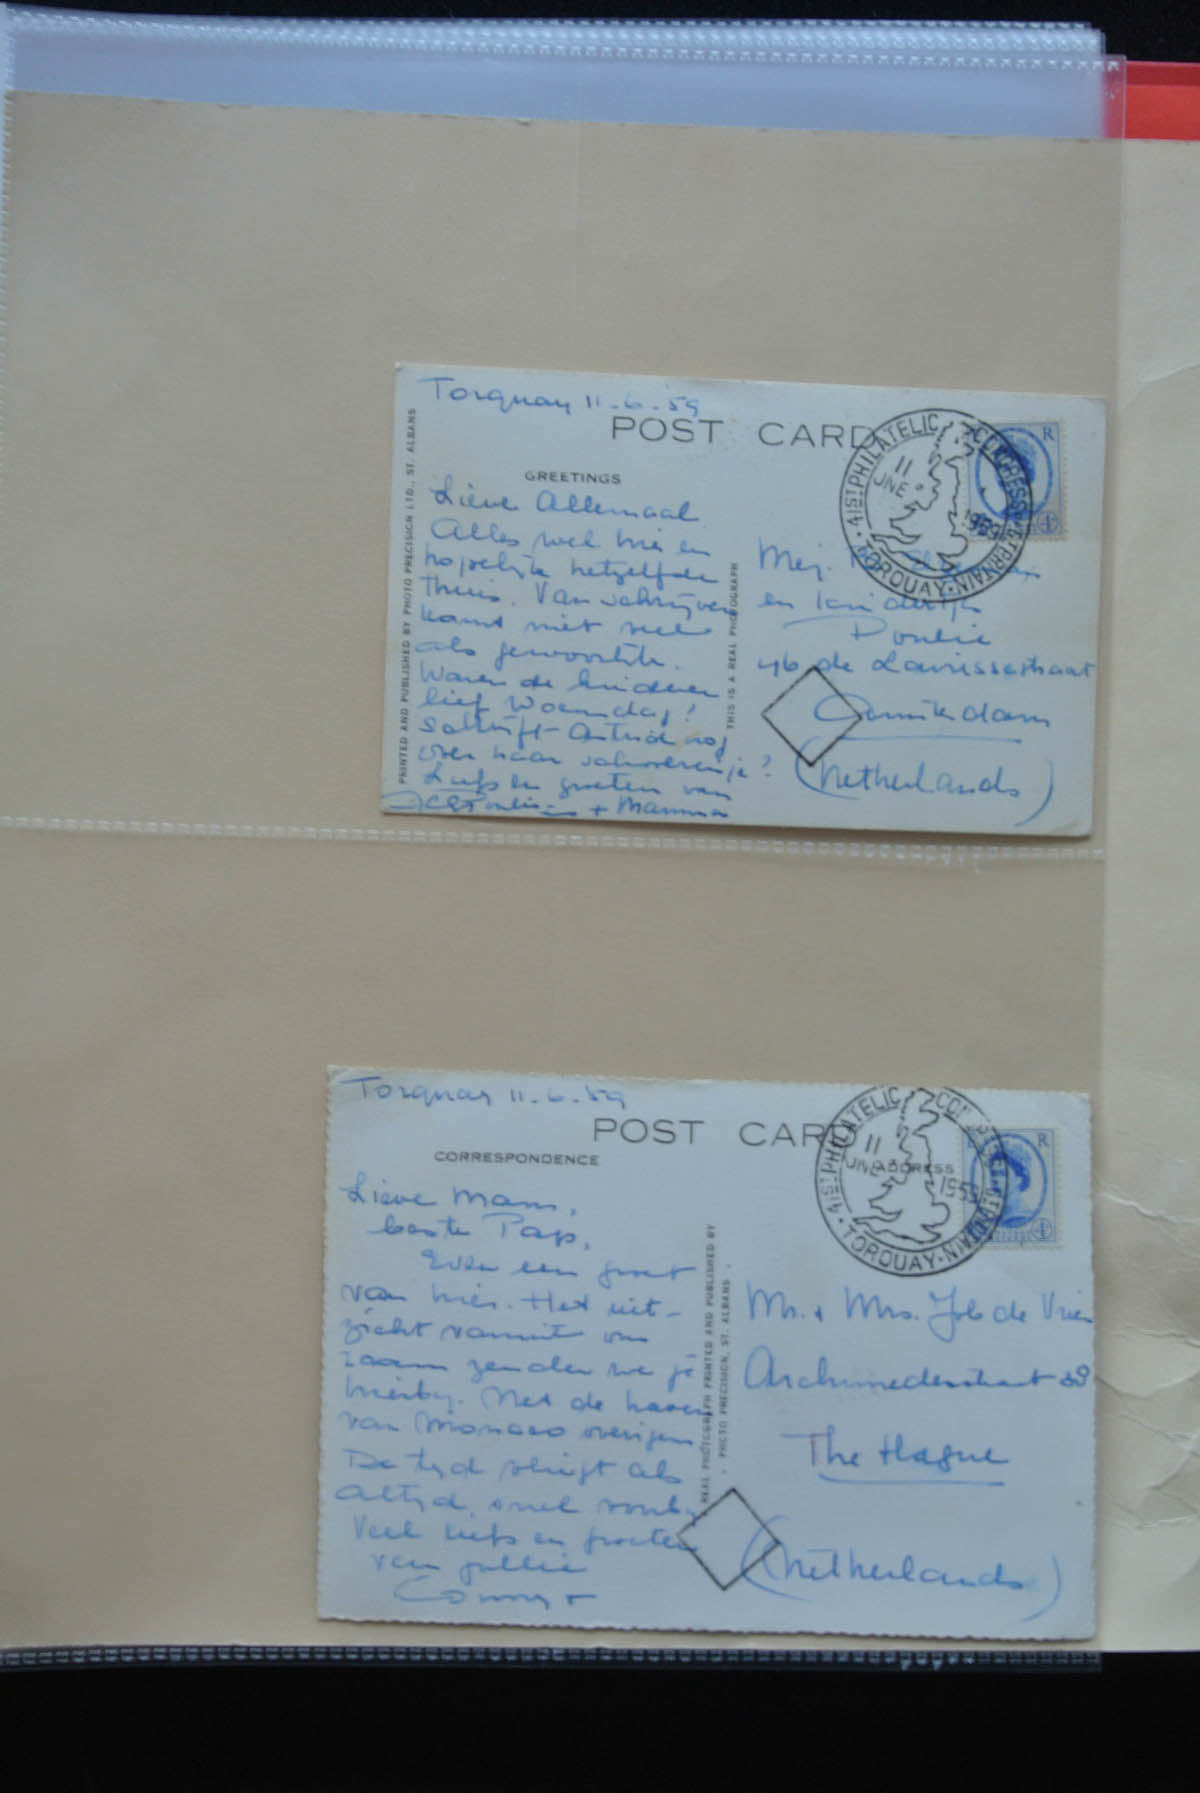 Torquay 11-6-59
POST CARD
GREETINGS
Lieve Allemaal.
Alles wel hier en
hopelijk hetzelfde
thuis. Van schrijven
komt niet veel
als gewoonlijk.
Waren de kinderen
lief Woensdag?
Schrijft Astrid nog
over haar schoolreisje?
Liefs en groeten van
+ Mamma
PRINTED AND PUBLISHED BY PHOTO PRECISION LTD., ST. ALBANS
THIS IS A REAL PHOTOGRAPH
41ST PHILATELIC CONGRESS GT. BRITAIN
11 JNE 1959
TORQUAY
R
Mej.
en kinderen
Poulie
46 de Lairessestraat
Amsterdam
(Netherlands)
Torquay 11-6-59
POST CARD
CORRESPONDENCE
ADDRESS
Lieve Mam,
beste Pap,
Even een groet
van hier. Het uit-
zicht vanuit ons
raam zenden we je
hierbij. Net de haven
van Monaco overigens
De tijd vliegt als
altijd, snel voorbij
Veel liefs en groeten
van jullie
Conny +
REAL PHOTOGRAPH PRINTED AND PUBLISHED BY
· PHOTO PRECISION, ST. ALBANS ·
41ST PHILATELIC CONGRESS GT. BRITAIN
11 JNE 1959
TORQUAY
E R
Mr. + Mrs. Job de Vries
Archimedesstraat 38
The Hague
(Netherlands)